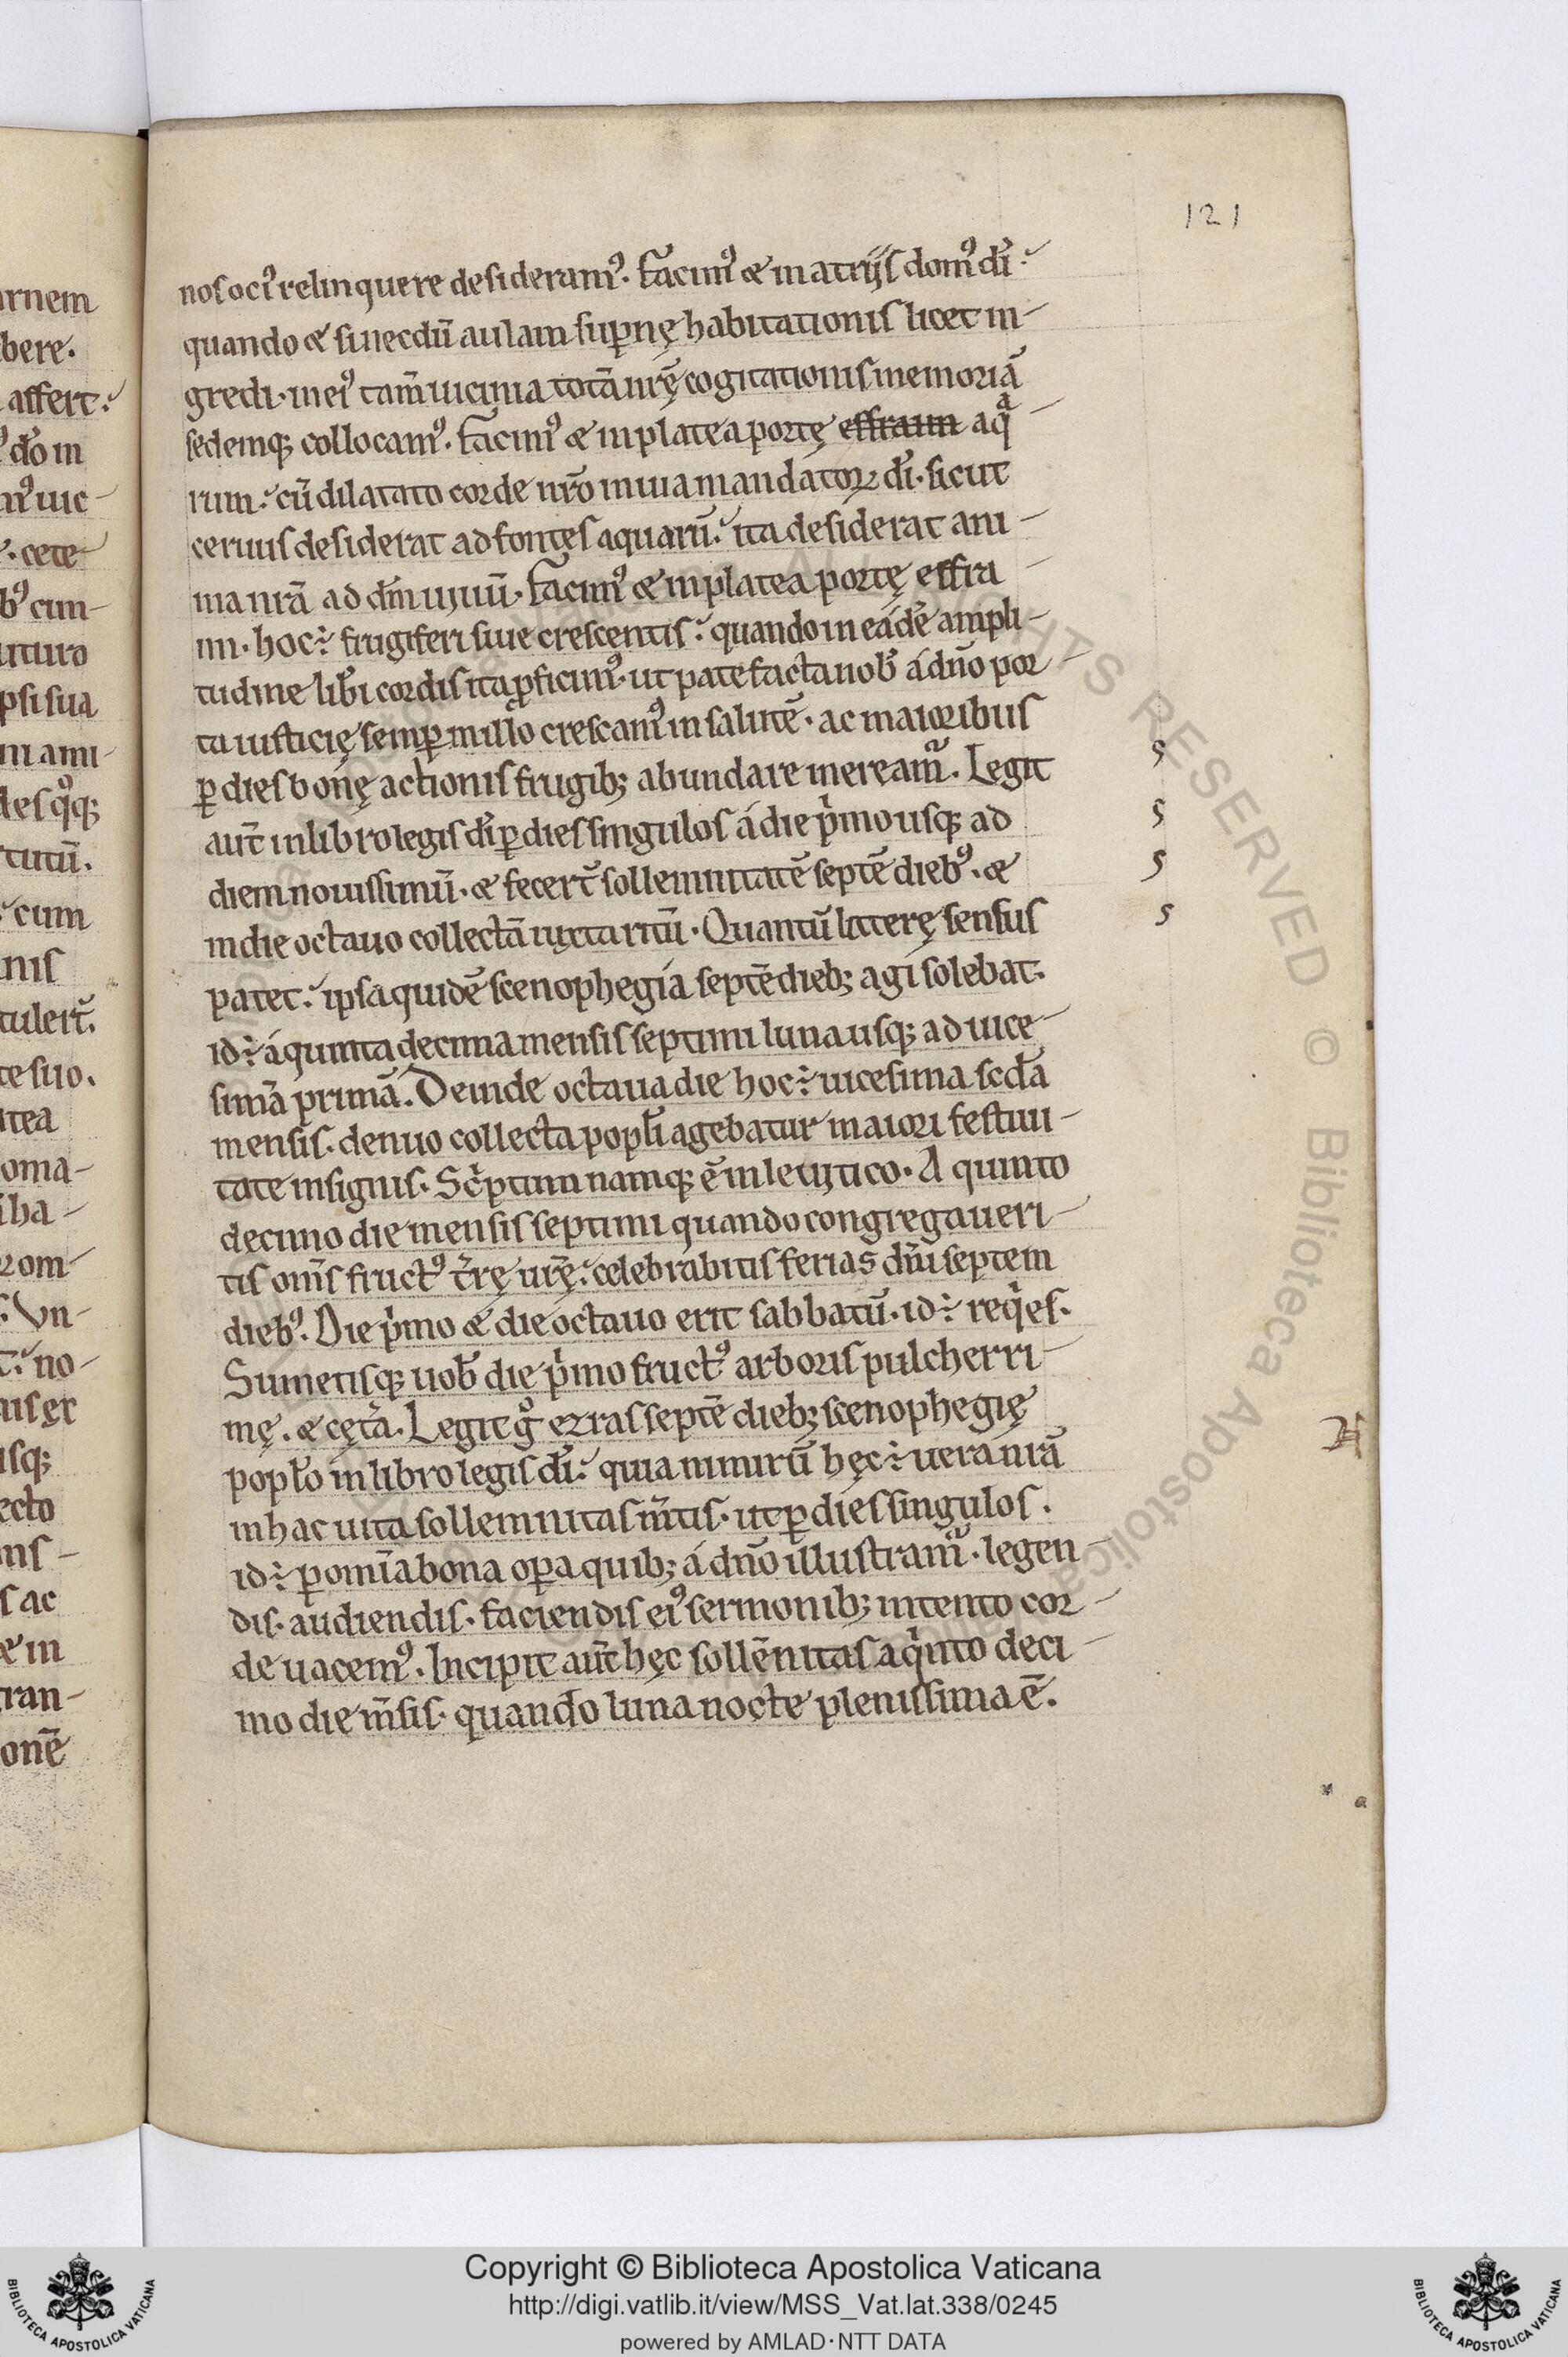 121
nos oci᷒ relinquere desideramꝰ. facimꝰ & in atrijs domꝰ dı̄:
quando & si necdū aulam suꝑnę habitationis licet in-
gredi. in eiꝰ tam̄ uicinia totā nr̄ę cogitationis memoriā
sedemq; collocamꝰ. facimꝰ & in platea portę effraim aqͣ
rum: cū dilatato corde nr̄o in uia mandatoꝝ dı̄. sicut
ceruus desiderat ad fontes aquarū: ita desiderat ani-
ma nr̄a ad dm̄ uiuū. facimꝰ & in platea portę effra
im. hoc ÷ frugiferi siue crescentis: quando in eadē ampli-
tudine libı̄ cordis ita ꝓficimꝰ. ut patefacta nob̄ á dn̄o por
ta iusticię semꝑ in illo crescamꝰ in salutē. ac maioribus
ꝑ dies bonę actionis frugib; abundare mereamur̃. Legit
aūt in libro legis dı̄ ꝑ dies singulos á die pͥmo usq; ad
diem nouissimū. & fecer̄t sollemnitatē septē diebꝰ. &
in die octauo collectā iuxta ritū. Quantū litterę sensus
patet: ipsa quidē scenophegia septē dieb; agi solebat.
id ÷ á quinta decima mensis septimi luna usq; ad uice-
simā primā. Deinde octaua die hoc ÷ uicesima scd̄a
mensis. denuo collecta popłi agebatur maiori festiui-
tate insignis. Scͥptum namq; ē in leuitico. A quinto
decimo die mensis septimi quando congregaueri-
tis om̄s fructꝰ t̄rę ur̄ę: celebrabitis ferias dn̄i septem
diebꝰ. Die pͥmo & die octauo erit sabbatū. id ÷ reqͥes.
Sumetisq; uob̄ die pͥmo fructꝰ arboris pulcherri-
mę. & cęt̄a. Legit gͦ ezras septē dieb; scenophegię
popło in libro legis dı̄: quia nimirū hęc ÷ uera nr̄a
in hac uita sollemnitas m̄tis. ut ꝑ dies singulos.
id ÷ ꝑ om̄ia bona oꝑa quib; á dn̄o illustramur̃. legen-
dis. audiendis. faciendis eiꝰ sermonib; intento cor-
de uacemꝰ. Incipit aūt hęc sollēnitas a qͥnto deci-
mo die m̄sis. quando luna nocte plenissima ē.
Copyright © Biblioteca Apostolica Vaticana
http://digi.vatlib.it/view/MSS_Vat.lat.338/0245
powered by AMLAD·NTT DATA